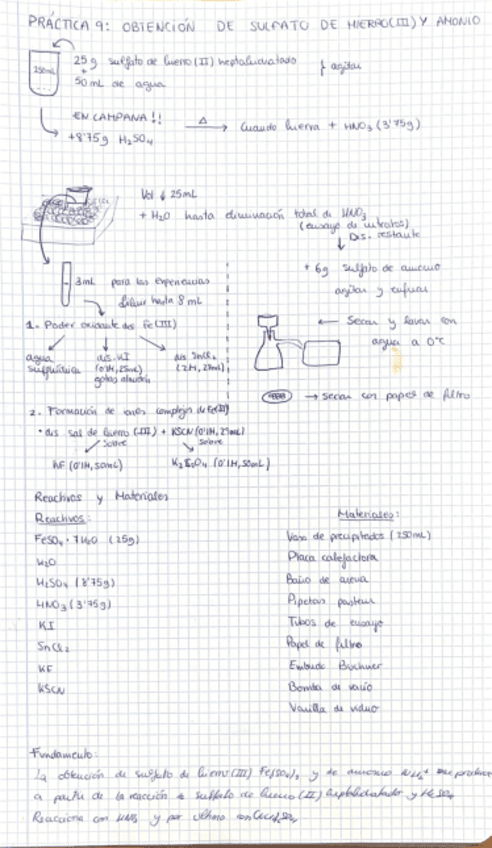 PRÁCTICA 9: OBTENCIÓN DE SULFATO DE HIERRO(III) Y AMONIO
250mL
25g sulfato de hierro(II) heptahidratado
+
50mL de agua
} agitar
EN CAMPANA!!
+8'75g H2SO4
Δ
Cuando hierva + HNO3 (3'75g)
Vol ↓ 25mL
+ H2O hasta eliminación total de HNO3
(ensayo de nitratos)
Dis. restante
3mL para las experiencias
diluir hasta 8mL
+ 6g sulfato de amonio
agitar y enfriar
1. Poder oxidante dis Fe(III)
agua sulfhídrica
dis. KI (0'1M, 25mL) gotas almidón
dis. SnCl2 (2M, 25mL)
← Secar y lavar con
agua a 0°C
→ secar con papel de filtro
2. Formación de iones complejos de Fe(III)
• dis sal de hierro (III) + KSCN (0'1M, 25mL)
sobre
sobre
KF (0'1M, 50mL)
(0'1M, 50mL)
Reactivos y Materiales
Reactivos:
FeSO4 · 7H2O (25g)
H2O
H2SO4 (8'75g)
HNO3 (3'75g)
KI
SnCl2
KF
KSCN
Materiales:
Vaso de precipitados (250mL)
Placa calefactora
Baño de arena
Pipetas pasteur
Tubos de ensayo
Papel de filtro
Embudo Büchner
Bomba de vacío
Varilla de vidrio
Fundamento:
La obtención de sulfato de hierro(III) y de amonio NH4+ se produce
a partir de la reacción de sulfato de hierro (II) heptahidratado y H2SO4
Reacciona con HNO3 y por último con